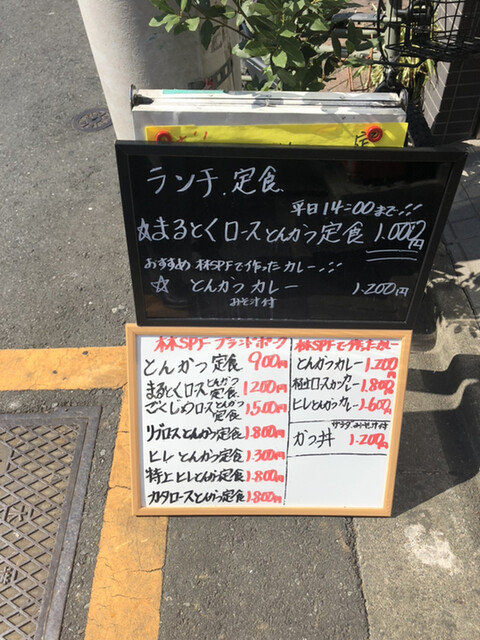 ランチ定食
平日14:00まで!!
☆まるとくロースとんかつ定食 1.000円
おすすめ 林SPFで作ったカレー!!
☆ とんかつカレー 1.200円
みそ汁付
林SPFブランドポーク
とんかつ定食 900円
まるとくロースとんかつ定食 1200円
ごくじょうロースとんかつ定食 1.500円
リブロースとんかつ定食 1.800円
ヒレとんかつ定食 1.300円
特上ヒレとんかつ定食 1.800円
カタロースとんかつ定食 1.800円
林SPFで作ったカレー
とんかつカレー 1.200円
極上ロースカツカレー 1.800円
ヒレとんかつカレー 1.600円
サラダ、みそ汁付
かつ丼 1.200円